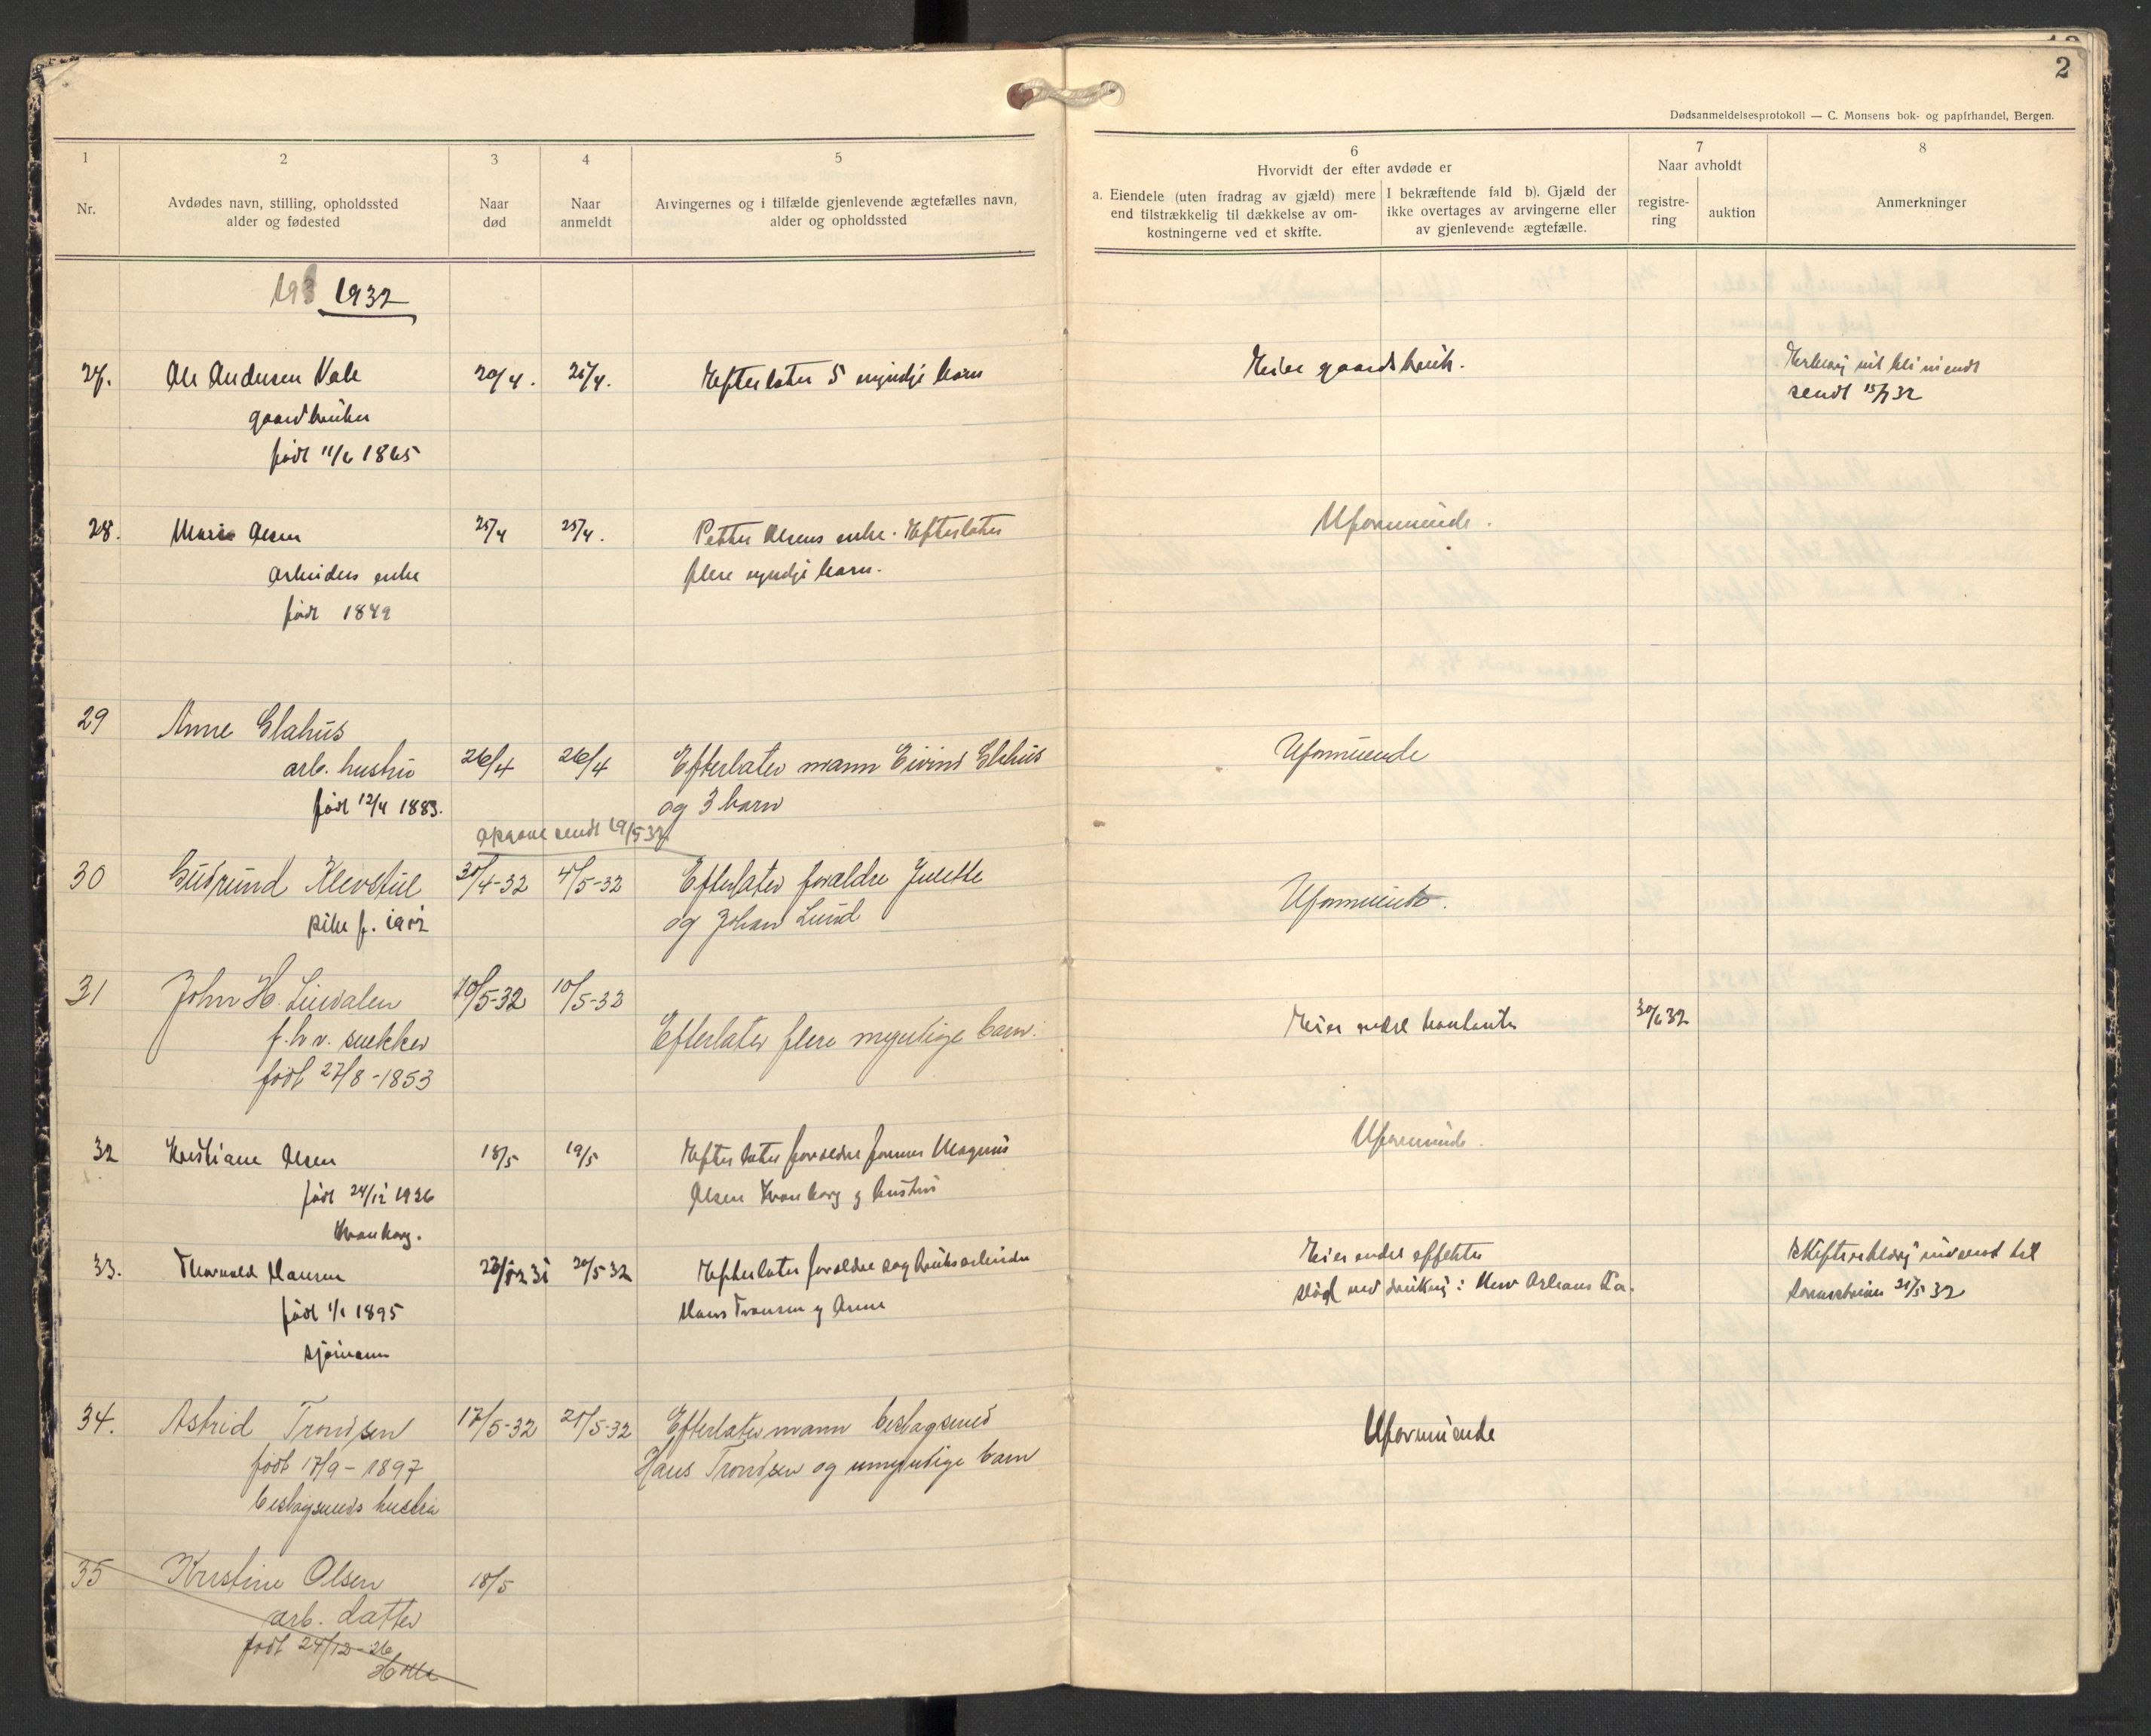 2
Dødsanmeldelsesprotokoll — C. Monsens bok- og papirhandel, Bergen.
1
Nr.
2
Avdødes navn, stilling, opholdssted
alder og fødested
3
Naar
død
4
Naar
anmeldt
5
Arvingernes og i tilfælde gjenlevende ægtefælles navn,
alder og opholdssted
6
Hvorvidt der efter avdøde er
a. Eiendele (uten fradrag av gjæld) mere
end tilstrækkelig til dækkelse av om-
kostningerne ved et skifte.
I bekræftende fald b). Gjæld der
ikke overtages av arvingerne eller
av gjenlevende ægtefælle.
7
Naar avholdt
registre-
ring
auktion
8
Anmerkninger
193 1932
27. Ole Andersen Vale 20/4. 25/4. Efterlater 5 myndige barn Eier gaardsbruk.
gaardbruker sendt 15/7 32
født 11/6 1865
28. Marie Olsen 25/4 25/4. Petter Olsens enke. Efterlater Uformuende.
Arbeiders enke flere myndige barn.
født 1849
29 Anne Glahus
arb. hustru 26/4 26/4 Efterlater mann Eivind Glahus Uformuende
født 12/4 1883. og 3 barn
opgave sendt 19/5 32
30 Gudrund Klevstul 30/4-32 4/5-32 Efterlater foreldre Julette Uformuende.
pike f. 1912 og Johan Lund
31 John H. Liendalen 10/5-32 10/5-32
f.h.v. snekker Efterlater flere myndige barn. Eier endel kontanter 30/6 32
født 27/8-1853
32 Kristiane Olsen 18/5 19/5 Efterlater foreldre former Magnus Uformuende.
født 24/12 1926 Olsen Kronborg og hustru
Kronborg.
33. Thorvald Hansen 23/12 31 20/5 32 Efterlater foreldre sagbruksarbeider Eier endel effekter
født 1/1 1895 Hans Tronsen og Anne død ved drukning i New Orleans La. 21/5 32
sjømann
34. Astrid Trondsen 17/5-32 21/5-32 Efterlater mann beslagsmed Uformuende
født 17/9-1897 Hans Trondsen og umyndige barn
beslagsmeds hustru
35 Kristine Olsen 18/5
arb. datter
født 24/12-26